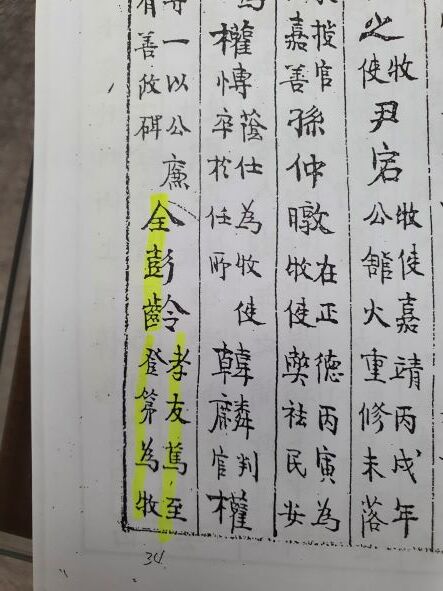 之牧使尹宕牧使嘉靖丙戌年
公舘火重修未落
授官
嘉善孫仲暾在正德丙寅為
牧使弊祛民安
為
權愽蔭仕為牧使
卒於任所韓麟判官權
一以公廉
有善政碑全彭齡孝友篤至
登第為牧
34